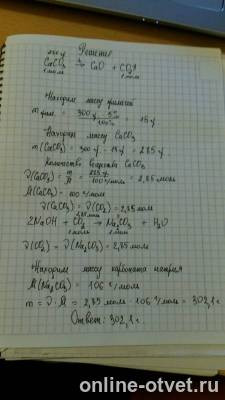 Решение
CaCO₃ →t CaO + CO₂↑
1 моль 1 моль
Находим массу примесей
m прим. = 300 г · 5% / 100% = 15 г
Находим массу CaCO₃
m(CaCO₃) = 300 г - 15 г = 285 г
Количество вещества CaCO₃
ν(CaCO₃) = m/M = 285 г / 100 г/моль = 2,85 моль
M(CaCO₃) = 100 г/моль
ν(CaCO₃) = ν(CO₂) = 2,85 моль
2,85 моль
2NaOH + CO₂ → Na₂CO₃ + H₂O
1 моль 1 моль
ν(CO₂) = ν(Na₂CO₃) = 2,85 моль
Находим массу карбоната натрия
M(Na₂CO₃) = 106 г/моль
m = ν · M = 2,85 моль · 106 г/моль = 302,1 г
Ответ: 302,1 г.
online-otvet.ru